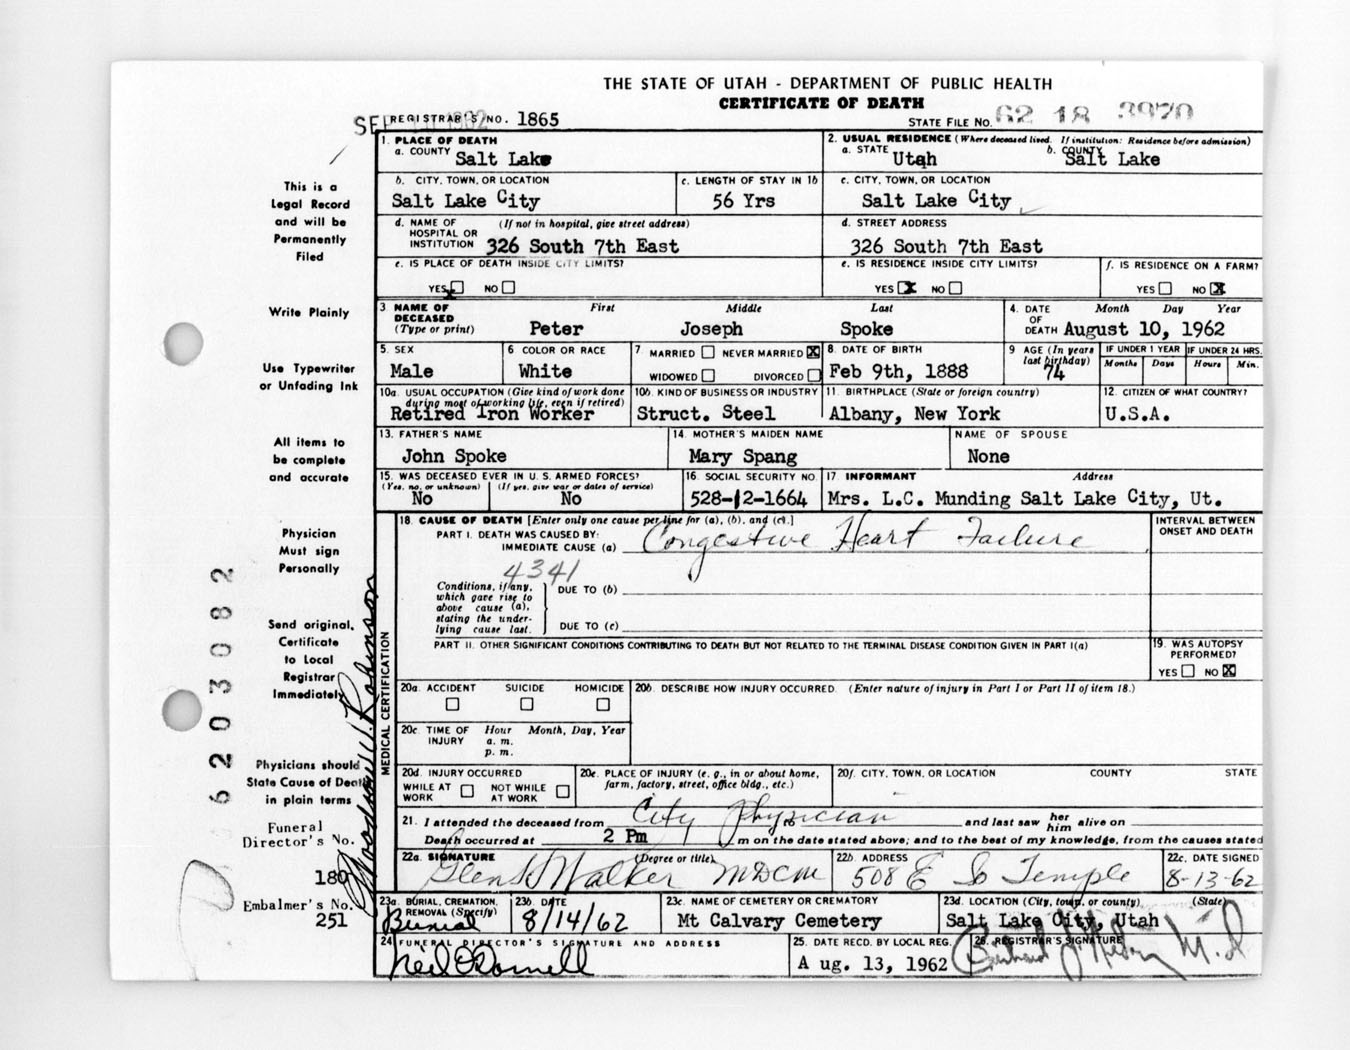 THE STATE OF UTAH - DEPARTMENT OF PUBLIC HEALTH
CERTIFICATE OF DEATH
REGISTRAR'S NO. 1865
STATE FILE NO. 62 18 3970
This is a
Legal Record
and will be
Permanently
Filed
Write Plainly
Use Typewriter
or Unfading Ink
All items to
be complete
and accurate
Physician
Must sign
Personally
Send original,
Certificate
to Local
Registrar
Immediately
Physicians should
State Cause of Death
in plain terms
Funeral
Director's No.
180
Embalmer's No.
251
6203082
1. PLACE OF DEATH
a. COUNTY Salt Lake
2. USUAL RESIDENCE (Where deceased lived. If institution: Residence before admission)
a. STATE Utah b. COUNTY Salt Lake
b. CITY, TOWN, OR LOCATION
Salt Lake City
c. LENGTH OF STAY IN 1b
56 Yrs
c. CITY, TOWN, OR LOCATION
Salt Lake City
d. NAME OF HOSPITAL OR INSTITUTION (If not in hospital, give street address)
326 South 7th East
d. STREET ADDRESS
326 South 7th East
e. IS PLACE OF DEATH INSIDE CITY LIMITS?
YES X NO
e. IS RESIDENCE INSIDE CITY LIMITS?
YES X NO
f. IS RESIDENCE ON A FARM?
YES NO X
3. NAME OF DECEASED (Type or print)
First Middle Last
Peter Joseph Spoke
4. DATE OF DEATH Month Day Year
August 10, 1962
5. SEX
Male
6 COLOR OR RACE
White
7 MARRIED NEVER MARRIED X
WIDOWED DIVORCED
8. DATE OF BIRTH
Feb 9th, 1888
9 AGE (In years last birthday)
74
IF UNDER 1 YEAR
Months Days
IF UNDER 24 HRS.
Hours Min.
10a. USUAL OCCUPATION (Give kind of work done during most of working life, even if retired)
Retired Iron Worker
10b. KIND OF BUSINESS OR INDUSTRY
Struct. Steel
11. BIRTHPLACE (State or foreign country)
Albany, New York
12. CITIZEN OF WHAT COUNTRY?
U.S.A.
13. FATHER'S NAME
John Spoke
14. MOTHER'S MAIDEN NAME
Mary Spang
NAME OF SPOUSE
None
15. WAS DECEASED EVER IN U. S. ARMED FORCES?
(Yes, no, or unknown) (If yes, give war or dates of service)
No No
16. SOCIAL SECURITY NO.
528-12-1664
17 INFORMANT Address
Mrs. L.C. Munding Salt Lake City, Ut.
MEDICAL CERTIFICATION
18. CAUSE OF DEATH [Enter only one cause per line for (a), (b), and (c).]
PART I. DEATH WAS CAUSED BY:
IMMEDIATE CAUSE (a) Congestive Heart Failure
INTERVAL BETWEEN
ONSET AND DEATH
4341
Conditions, if any,
which gave rise to
above cause (a),
stating the under-
lying cause last.
DUE TO (b)
DUE TO (c)
PART II. OTHER SIGNIFICANT CONDITIONS CONTRIBUTING TO DEATH BUT NOT RELATED TO THE TERMINAL DISEASE CONDITION GIVEN IN PART I(a)
19. WAS AUTOPSY PERFORMED?
YES NO X
20a. ACCIDENT SUICIDE HOMICIDE
20b. DESCRIBE HOW INJURY OCCURRED. (Enter nature of injury in Part I or Part II of item 18.)
20c. TIME OF INJURY Hour Month, Day, Year
a. m.
p. m.
20d. INJURY OCCURRED
WHILE AT WORK NOT WHILE AT WORK
20e. PLACE OF INJURY (e. g., in or about home, farm, factory, street, office bldg., etc.)
20f. CITY, TOWN, OR LOCATION COUNTY STATE
21. I attended the deceased from City Physician to and last saw her him alive on
Death occurred at 2 Pm m on the date stated above; and to the best of my knowledge, from the causes stated
22a. SIGNATURE (Degree or title)
Glen S Walker MDCM
22b. ADDRESS
508 E So Temple
22c. DATE SIGNED
8-13-62
23a. BURIAL, CREMATION, REMOVAL (Specify)
Burial
23b. DATE
8/14/62
23c. NAME OF CEMETERY OR CREMATORY
Mt Calvary Cemetery
23d. LOCATION (City, town, or county) (State)
Salt Lake City, Utah
24 FUNERAL DIRECTOR'S SIGNATURE AND ADDRESS
Neil O'Donnell
25. DATE RECD. BY LOCAL REG.
A ug. 13, 1962
26. REGISTRAR'S SIGNATURE
M. D